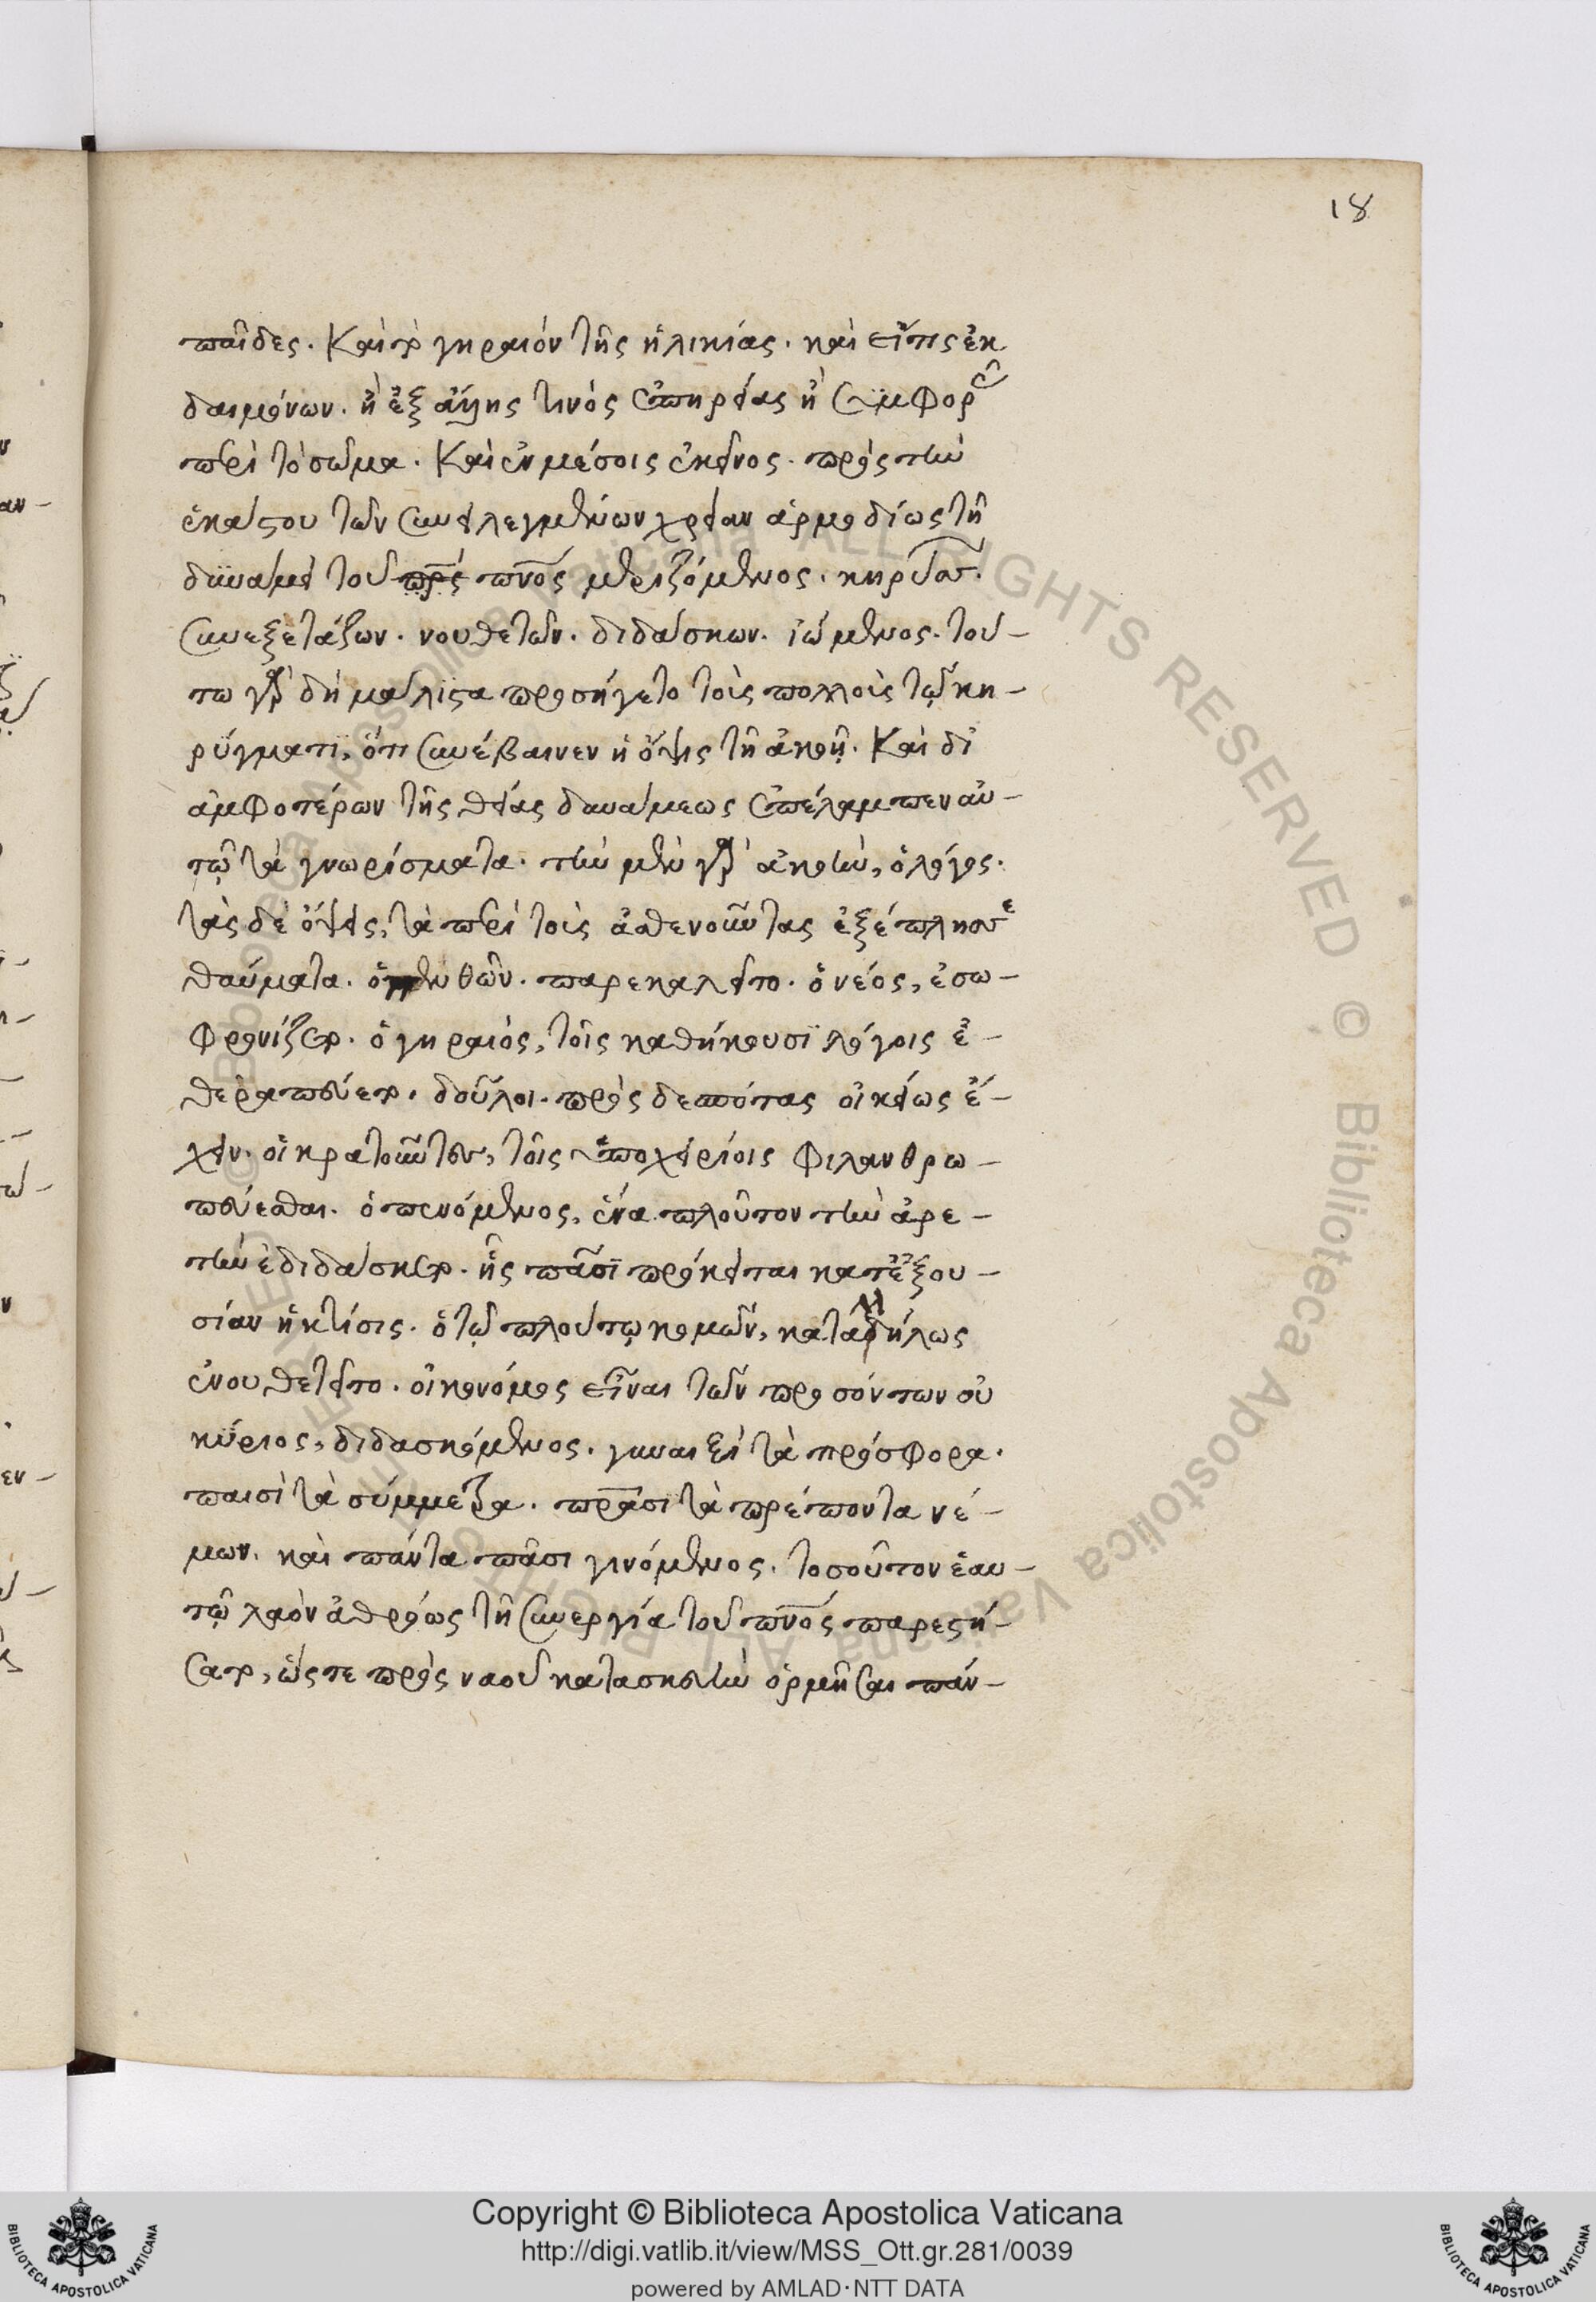 18
παῖδες. Καὶ τὸ γηραιόν τῆς ἡλικίας. καὶ εἴ τις ἐκ
δαιμόνων. ἢ ἐξ ἄλλης τινὸς ἐπηρείας ἢ συμφορᾶς
περὶ τὸ σῶμα. Καὶ ἐν μέσοις ἐκεῖνος. πρὸς τὴν
ἑκάστου τῶν συνειλεγμένων χρείαν ἁρμοδίως τῆ
δυνάμει τοῦ πνς μεριζόμενος. κηρύσσων.
συνεξετάζων. νουθετῶν. διδάσκων. ἰώμενος. τού-
τω γὰρ δὴ μάλιστα προσήγετο τοὺς πολλοὺς τῷ κη-
ρύγματι, ὅτι συνέβαινεν ἡ ὄψις τῆ ἀκοῇ. Καὶ δι'
ἀμφοτέρων τῆς θείας δυνάμεως ἐπέλαμπεν αὐ-
τῷ τὰ γνωρίσματα. τὴν μὲν γὰρ ἀκοὴν, ὁ λόγος.
τὰς δὲ ὄψεις, τὰ περὶ τοὺς ἀσθενοῦντας ἐξέπλησσε
θαύματα. ὁ πενθῶν. παρεκαλεῖτο. ὁ νέος, ἐσω-
φρονίζετο. ὁ γηραιὸς, τοῖς καθήκουσι λόγοις ἐ-
θεραπεύετο. δοῦλοι. πρὸς δεσπότας οἰκείως ἔ-
χειν. οἱ κρατοῦντες, τοῖς ὑποχειρίοις φιλανθρω-
πεύεσθαι. ὁ πενόμενος, ἕνα πλοῦτον τὴν ἀρε-
τὴν ἐδιδάσκετο. ἧς πᾶσι πρόκειται κατ' ἐξου-
σίαν ἡ κτίσις. ὁ τῷ πλούτῳ κομῶν, καταλλήλως
ἐνουθετεῖτο. οἰκονόμος εἶναι τῶν προσόντων οὐ
κύριος, διδασκόμενος. γυναιξὶ τὰ πρόσφορα.
παισὶ τὰ σύμμετρα. πράσι τὰ πρέποντα νέ-
μων. καὶ πάντα πᾶσι γινόμενος. τοσοῦτον ἑαυ-
τῷ λαὸν ἀθρόως τῆ συνεργία τοῦ πνς παρεστή-
σατο, ὥστε πρὸς ναοῦ κατασκευὴν ὁρμῆσαι πάν-
Copyright © Biblioteca Apostolica Vaticana
http://digi.vatlib.it/view/MSS_Ott.gr.281/0039
powered by AMLAD·NTT DATA